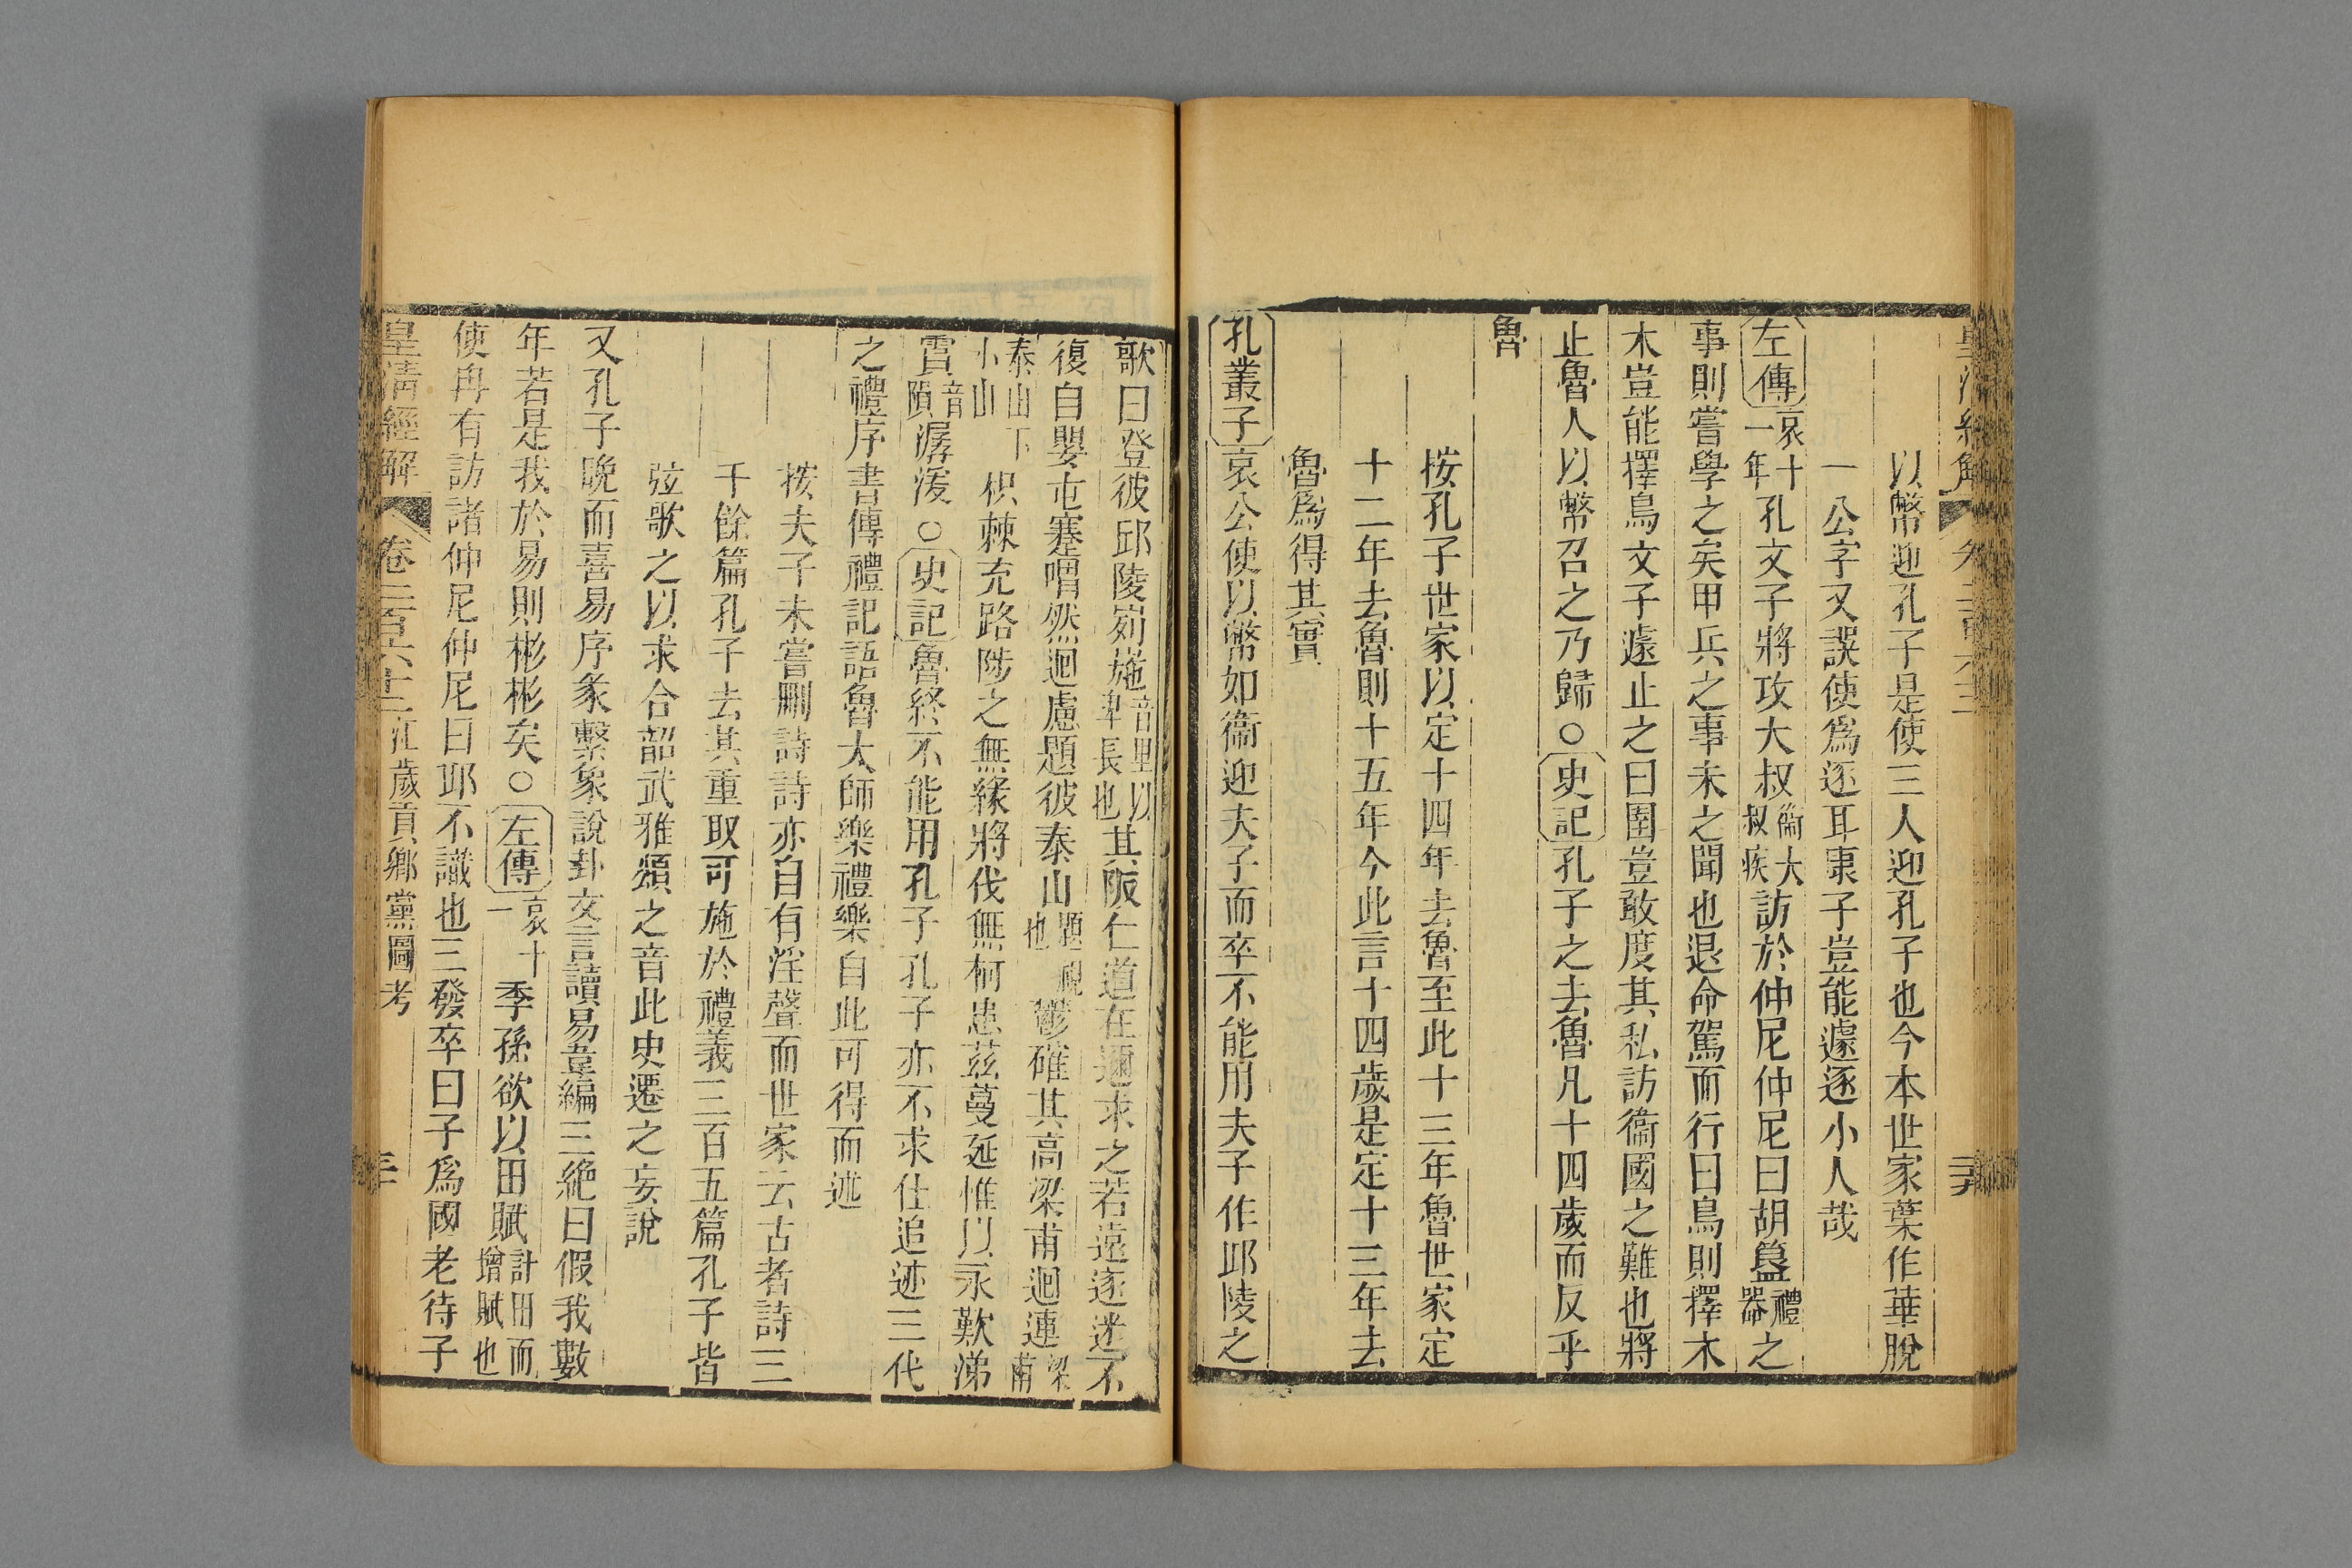 皇清經解 卷二百六十二
以幣迎孔子是使三人迎孔子也今本世家葉作華脫
一公字又誤使爲逐耳康子豈能遽逐小人哉
左傳哀十一年孔文子將攻大叔衞大叔疾訪於仲尼仲尼曰胡簋禮器之
事則嘗學之矣甲兵之事未之聞也退命駕而行曰鳥則擇木
木豈能擇鳥文子遽止之曰圉豈敢度其私訪衞國之難也將
止魯人以幣召之乃歸○史記孔子之去魯凡十四歲而反乎
魯
按孔子世家以定十四年去魯至此十三年魯世家定
十二年去魯則十五年今此言十四歲是定十三年去
魯爲得其實
孔叢子哀公使以幣如衞迎夫子而卒不能用夫子作邱陵之
歌曰登彼邱陵峛崺音里以聿長也其阪仁道在邇求之若遠遂迷不
復自嬰屯蹇喟然迴慮題彼泰山題視也鬱確其高梁甫迴連梁甫
泰山下小山枳棘充路陟之無緣將伐無柯患茲蔓延惟以永歎涕
霣音隕潺湲○史記魯終不能用孔子孔子亦不求仕追迹三代
之禮序書傳禮記語魯大師樂禮樂自此可得而述
按夫子未嘗刪詩詩亦自有淫聲而世家云古者詩三
千餘篇孔子去其重取可施於禮義三百五篇孔子皆
弦歌之以求合韶武雅頌之音此史遷之妄說
又孔子晚而喜易序彖繫象說卦文言讀易韋編三絶曰假我數
年若是我於易則彬彬矣○左傳哀十一季孫欲以田賦計田而增賦也
使冉有訪諸仲尼仲尼曰邱不識也三發卒曰子爲國老待子
皇清經解 卷二百六十二 江歲貢鄉黨圖考